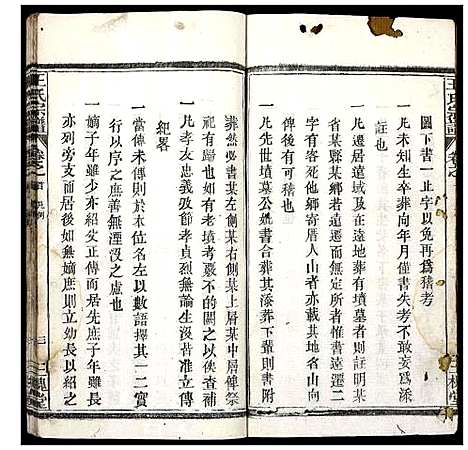 圖下書一止字以免再爲稽考
一凡未知生卒葬向年月僅書失考不敢妄爲添
註也
一遷居遠域及在遠地葬有墳墓者則註明某
省某縣某鄉若遠遷而無定所者惟書遠遷二
字其有他鄉寄厝人山者亦載其地名山向
俾後有可稽也
一凡先世墳墓公妣書合葬其添葬下輩則書附
葬然必書某左側某右側某上層某下層俾祭
祀有歸也如有老墳考覈不的闕之以俟查補
一凡孝友忠義及節孝貞烈無論生没皆准立傳
紀畧
一當傳未傳則於本位名左以數語擇其一二實
行以序之庶善無湮没之虞也
一嫡子年雖少亦紹父正傳而居先庶子年雖長
亦列旁支而居後如無嫡庶則立幼長以紹之
王氏宗譜
卷之首
凡例
三槐堂
王氏宗譜
卷之
三槐堂